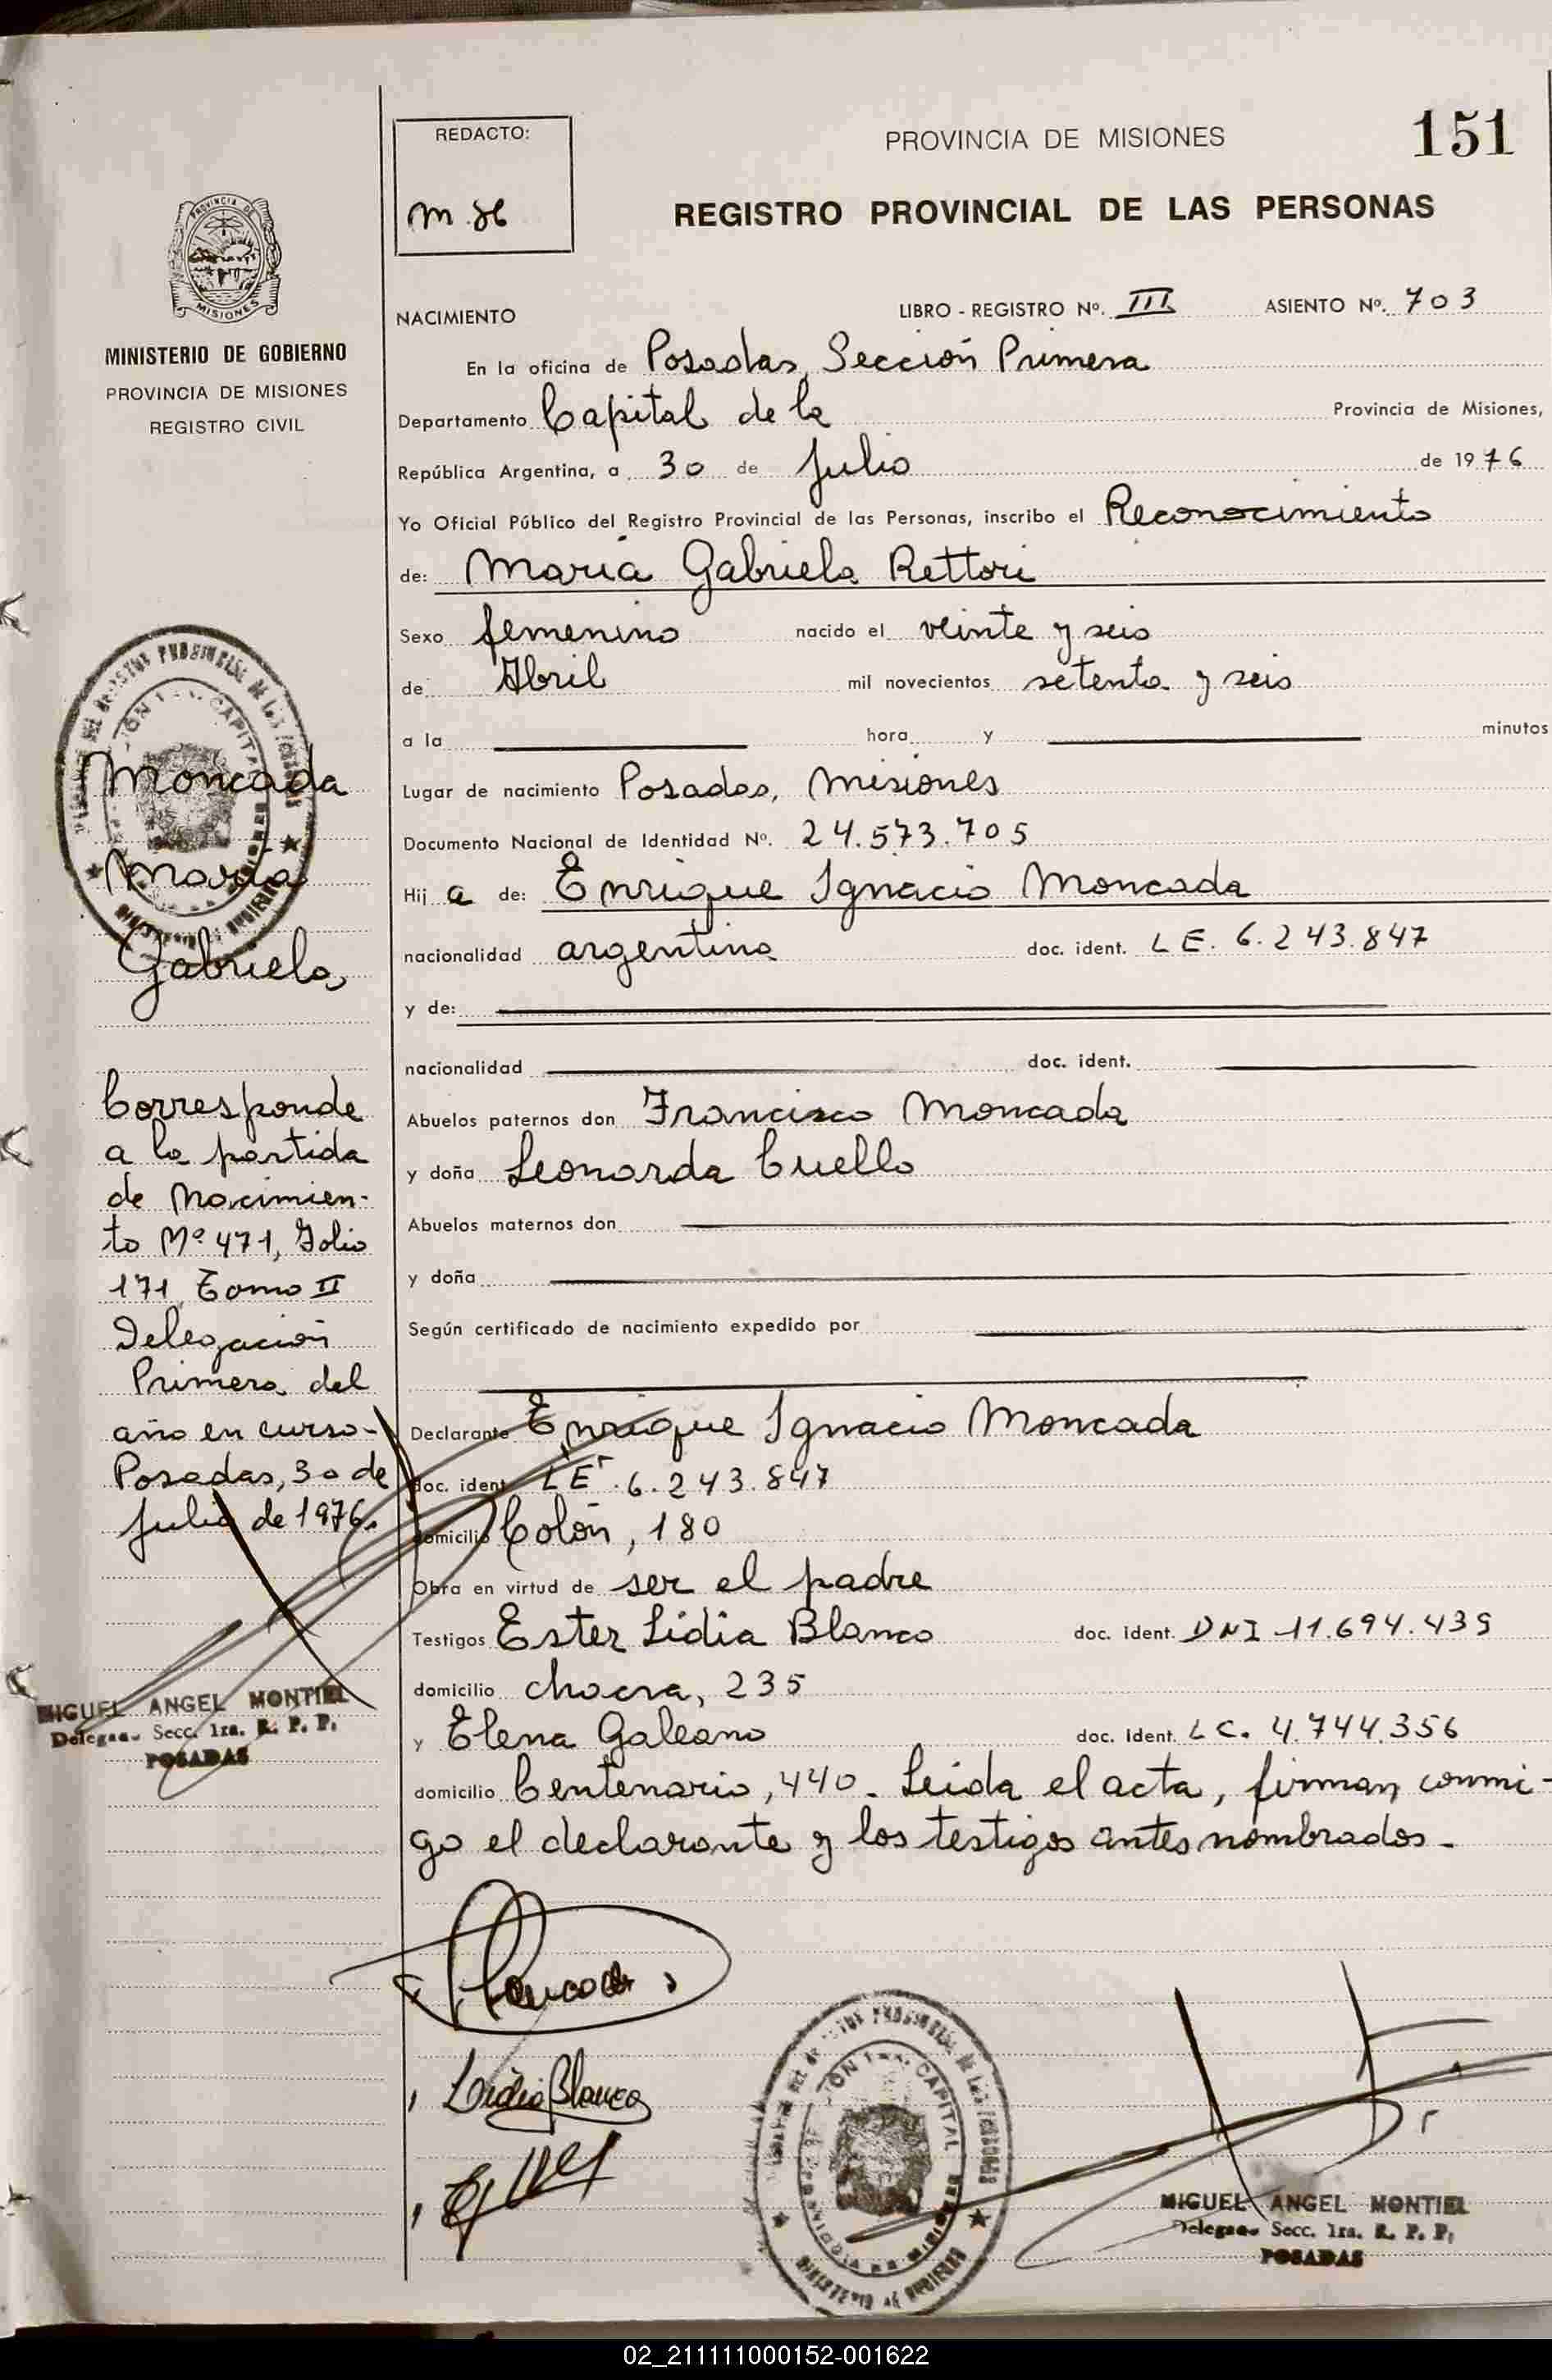 REDACTO:
M.H
PROVINCIA DE MISIONES
151
REGISTRO PROVINCIAL DE LAS PERSONAS
MINISTERIO DE GOBIERNO
PROVINCIA DE MISIONES
REGISTRO CIVIL
NACIMIENTO LIBRO - REGISTRO Nº. III ASIENTO Nº. 703
En la oficina de Posadas, Sección Primera
Departamento Capital de la Provincia de Misiones,
República Argentina, a 30 de Julio de 1976
Yo Oficial Público del Registro Provincial de las Personas, inscribo el Reconocimiento
de: María Gabriela Rettori
Sexo femenino nacido el veinte y seis
de Abril mil novecientos setenta y seis
a la hora y minutos
Lugar de nacimiento Posadas, Misiones
Documento Nacional de Identidad Nº. 24.573.705
Hij a de: Enrique Ignacio Moncada
nacionalidad argentina doc. ident. L E. 6.243.847
y de:
nacionalidad doc. ident.
Abuelos paternos don Francisco Moncada
y doña Leonarda Cuello
Abuelos maternos don
y doña
Según certificado de nacimiento expedido por
Declarante Enrique Ignacio Moncada
doc. ident LE. 6.243.847
domicilio Colón, 180
Obra en virtud de ser el padre
Testigos Ester Lidia Blanco doc. ident. DNI 11.694.439
domicilio chacra, 235
y Elena Galeano doc. ident. LC. 4.744.356
domicilio Centenario, 440. Leida el acta, firman conmi-
go el declarante y los testigos antes nombrados.
Moncada
María
Gabriela
Corresponde
a la partida
de Nacimien-
to Nº 471, Folio
171, Tomo II
Delegación
Primera del
año en curso-
Posadas, 30 de
Julio de 1976.
MIGUEL ANGEL MONTIEL
Delegado Secc. 1ra. R. P. P.
POSADAS
Moncada
Lidia Blanco
MIGUEL ANGEL MONTIEL
Delegado Secc. 1ra. R. P. P.
POSADAS
02_211111000152-001622